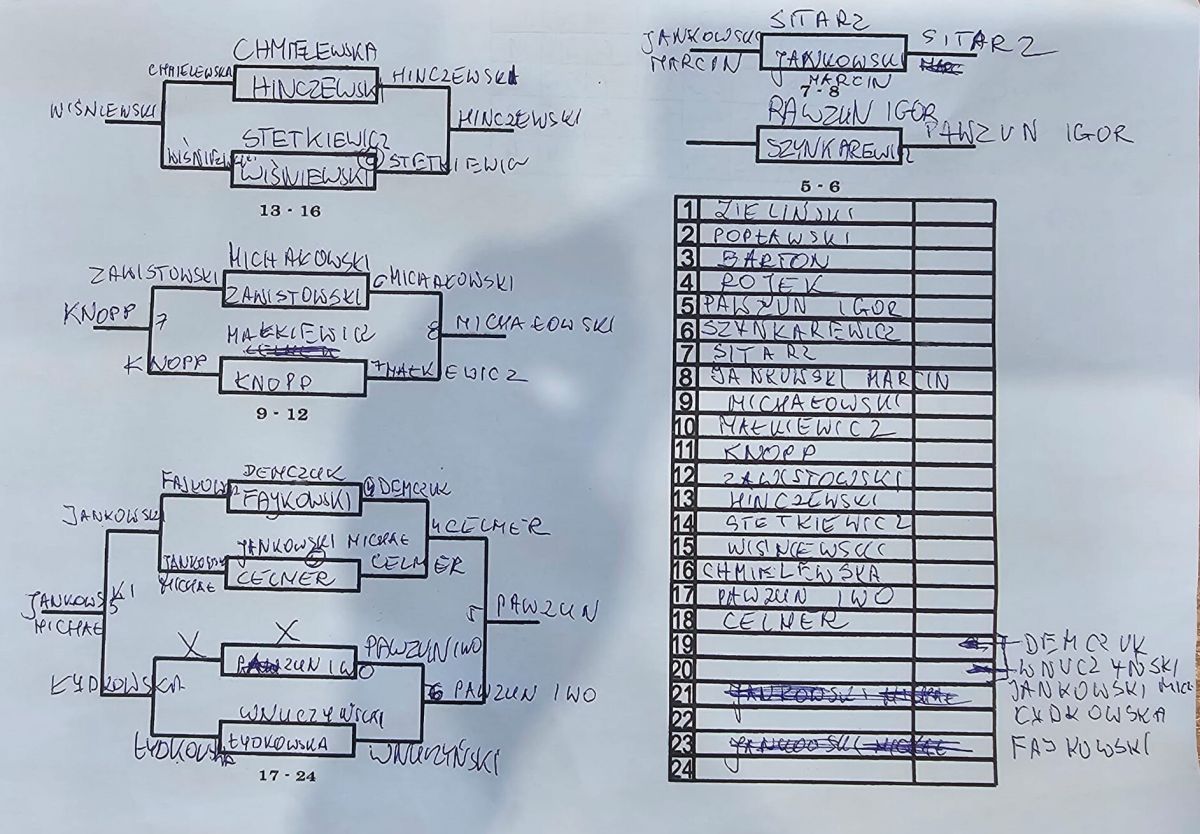 CHMIELEWSKA
CHMIELEWSKA
HINCZEWSKI
HINCZEWSKA
WIŚNIEWSKI
HINCZEWSKI
STETKIEWICZ
WIŚNIEWSKI
STETKIEWICZ
WIŚNIEWSKI
13 - 16
MICHAŁOWSKI
ZAWISTOWSKI
MICHAŁOWSKI
ZAWISTOWSKI
KNOPP
7
8
MICHAŁOWSKI
MAŁKIEWICZ
KNOPP
7 MAŁKIEWICZ
KNOPP
9 - 12
DEMCZUK
FAJKOW
4 DEMCZUK
FAYKOWSKI
JANKOWSKI
4 CELMER
JANKOWSKI MICHAŁ
JANKOWSKI
MICHAŁ
CELMER
CELMER
JANKOWSKI
5
MICHAŁ
5
PAWZUN
X
X
PAWZUN IWO
PAWZUN IWO
ŁYDKOWSKA
6 PAWZUN IWO
WNUCZYŃSKI
ŁYDKOWSKA
ŁYDKOWSKA
WNUCZYŃSKI
17 - 24
SITARZ
JANKOWSKI
SITARZ
MARCIN
JANKOWSKI
MARCIN
7 - 8
PAWZUN IGOR
PAWZUN IGOR
SZYNKAREWICZ
5 - 6
1 ZIELIŃSKI
2 POPŁAWSKI
3 BARTON
4 ROTEK
5 PAWZUN IGOR
6 SZYNKAREWICZ
7 SITARZ
8 JANKOWSKI MARCIN
9 MICHAŁOWSKI
10 MAŁKIEWICZ
11 KNOPP
12 ZAWISTOWSKI
13 HINCZEWSKI
14 STETKIEWICZ
15 WISNIEWSKI
16 CHMIELEWSKA
17 PAWZUN IWO
18 CELMER
19 DEMCZUK
20 WNUCZYŃSKI
21 JANKOWSKI MICHAŁ JANKOWSKI MICH
22 ŁYDKOWSKA
23 JANKOWSKI MICHAŁ FAJKOWSKI
24